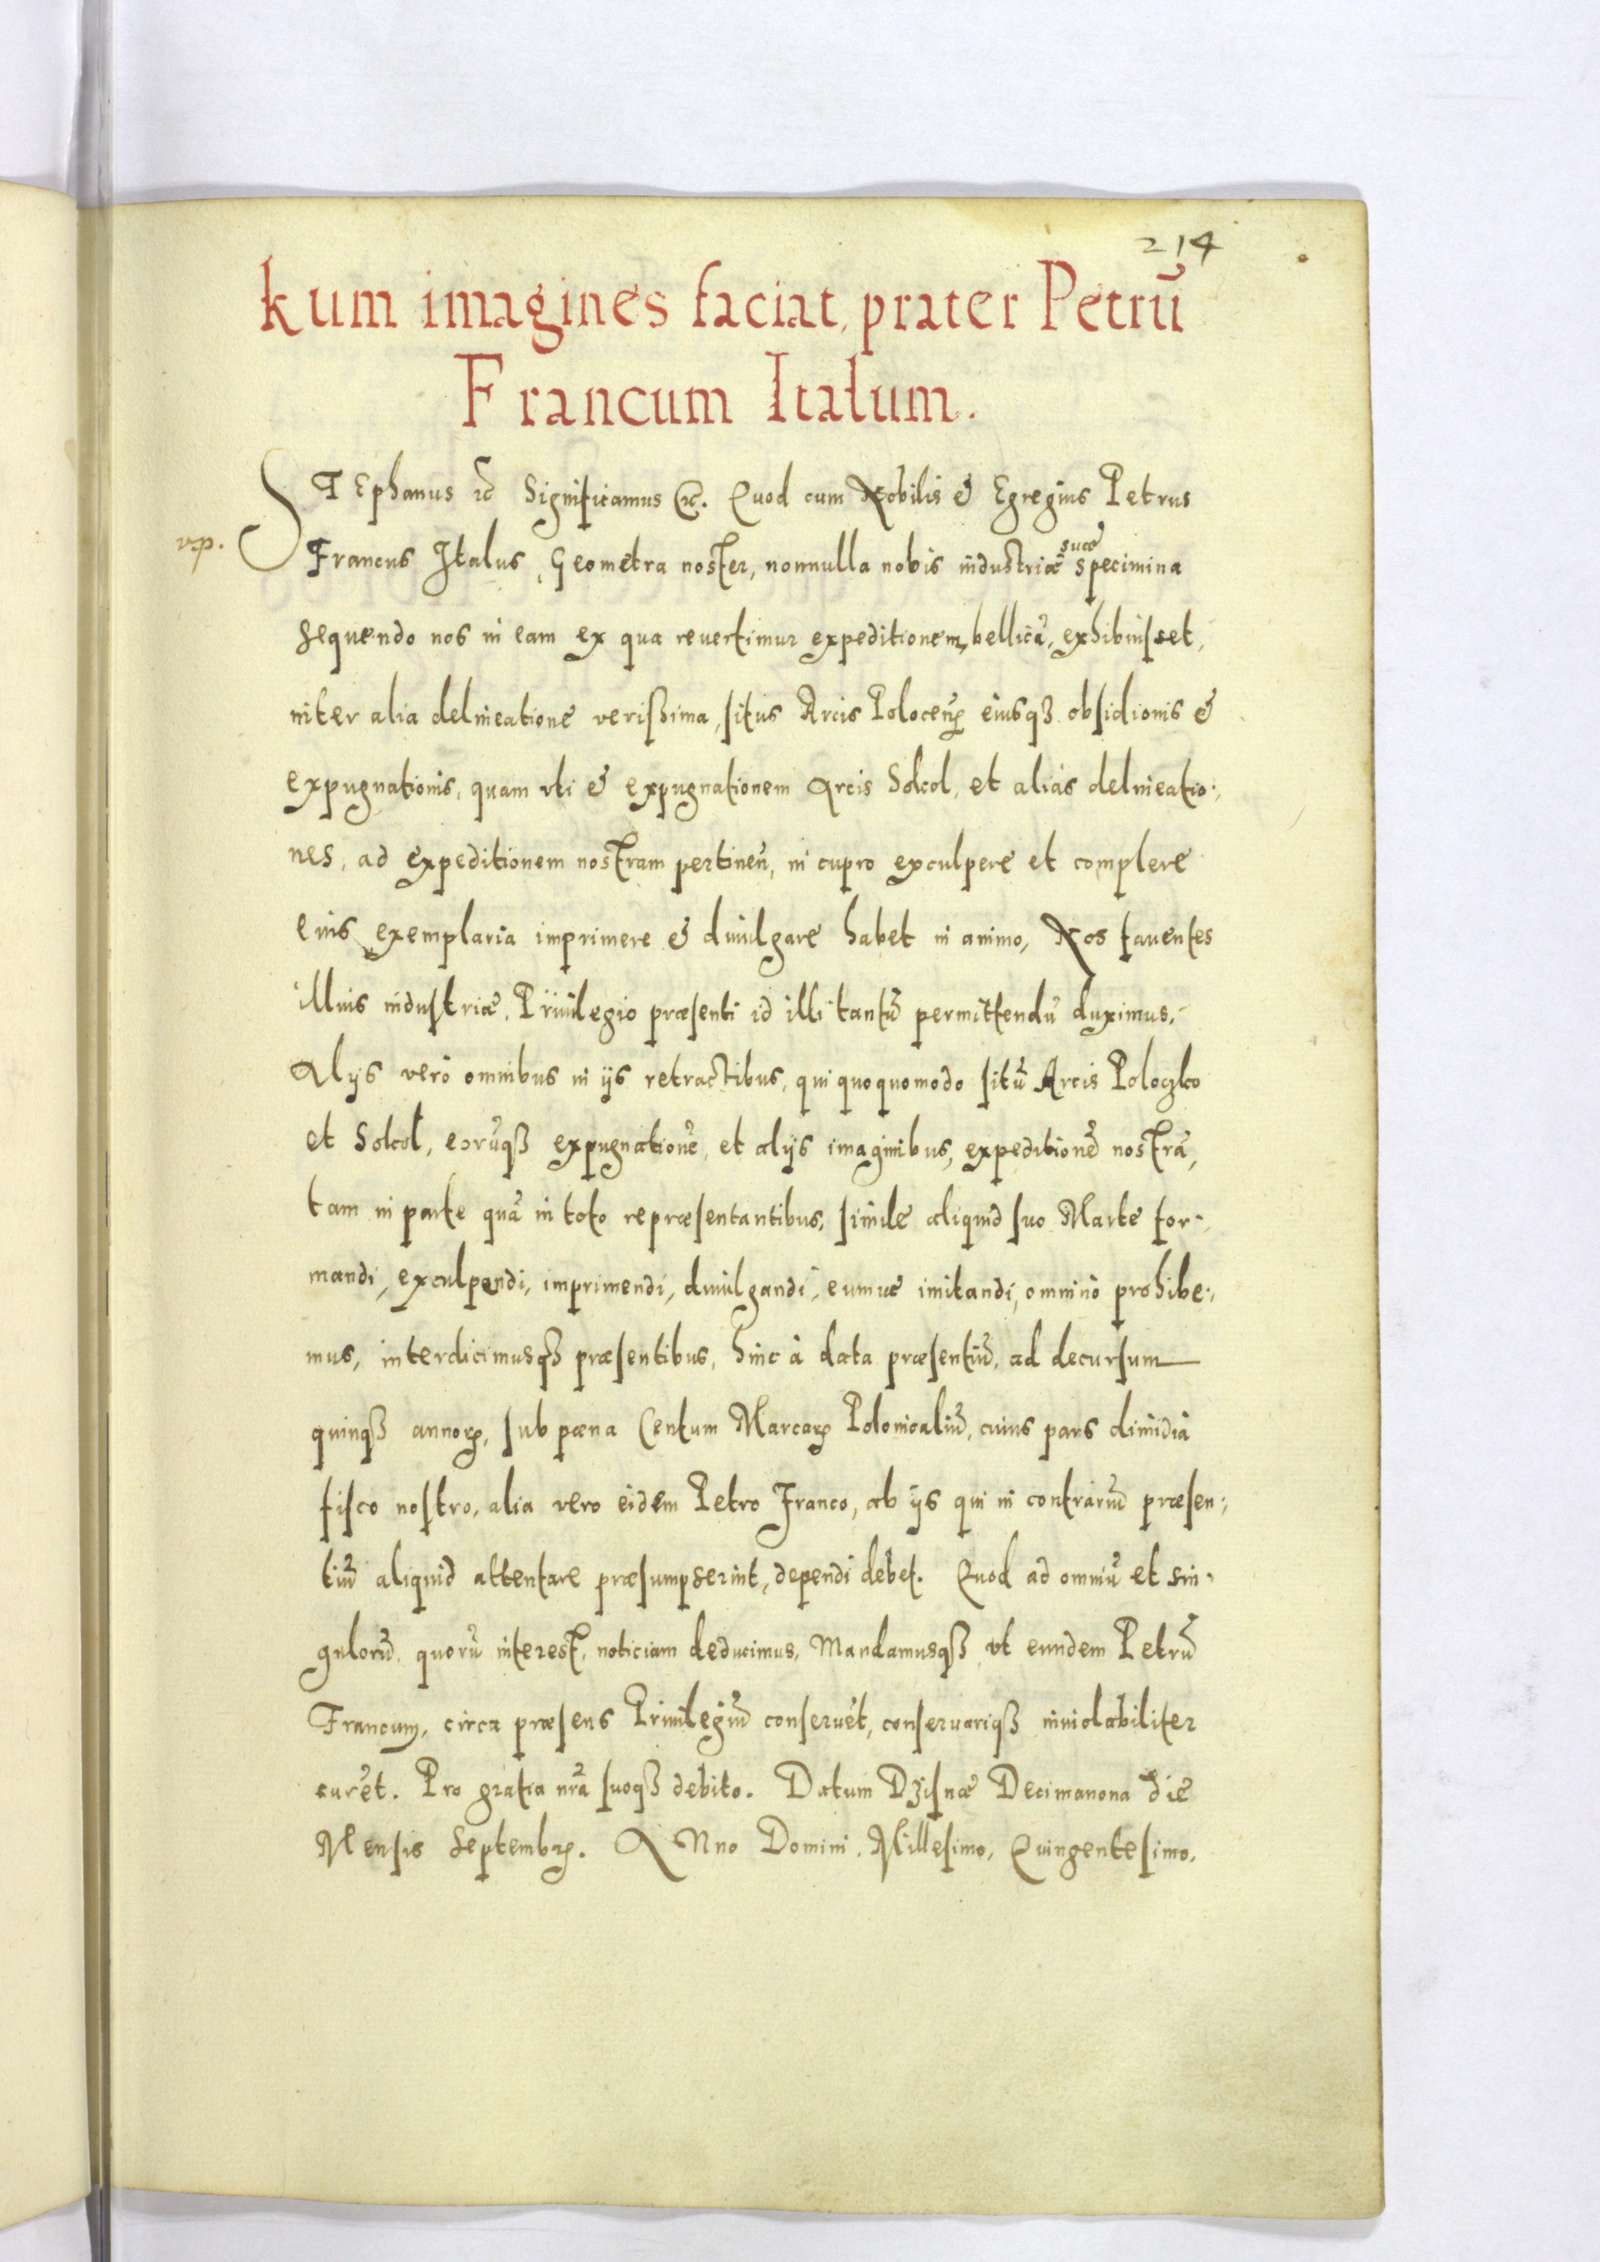 214
kum imagines faciat, præter Petrū
Francum Italum.
STEphanus ꝛc̃ Significamus ꝛc̃. Quod cum Nobilis & Egregius Petrus
vp.
Francus Italus, Geometra noster, nonnulla nobis industriæ suæ specimina
sequendo nos in eam ex qua revertimur expeditionem bellicā, exhibuisset,
inter alia delineatione verißima, situs Arcis Polocen̄ eiusqꝫ obsidionis &
expugnationis, quam vti & expugnationem Arcis Sokol, et alias delineatio-
nes, ad expeditionem nostram pertineñ, in cupro exculpere et complere
eius exemplaria imprimere & divulgare habet in animo, Nos faventes
illius industriæ, Privilegio præsenti id illi tantū permittendū duximus,
Alijs verò omnibus in ijs retractibus, qui quoquomodo sitū Arcis Poloczko
et Sokol, eorūqꝫ expugnationē, et alijs imaginibus, expeditionē nostrā,
tam in parte quā in toto repræsentantibus, simile aliquid suo Marte for-
mandi, exculpendi, imprimendi, divulgandi, eumve imitandi, omninò prohibe-
mus, interdicimusqꝫ præsentibus, hinc à data præsentiū, ad decursum
quinqꝫ annoꝝ, sub pœna Centum Marcaꝝ Polonicaliū, cuius pars dimidia
fisco nostro, alia vero eidem Petro Franco, ab ijs qui in contrariū præsen-
tiū aliquid attentare præsumpserint, dependi debet. Quod ad omniū et sin-
gulorū, quorū interest, noticiam deducimus, Mandamusqꝫ vt eundem Petrū
Francum, circa præsens Privilegiū conservēt, conservariqꝫ inviolabiliter
curēt. Pro gratia nrā suoqꝫ debito. Datum Dzisnæ Decimanona die
Mensis Septembꝝ. ANno Domini, Millesimo, Quingentesimo,